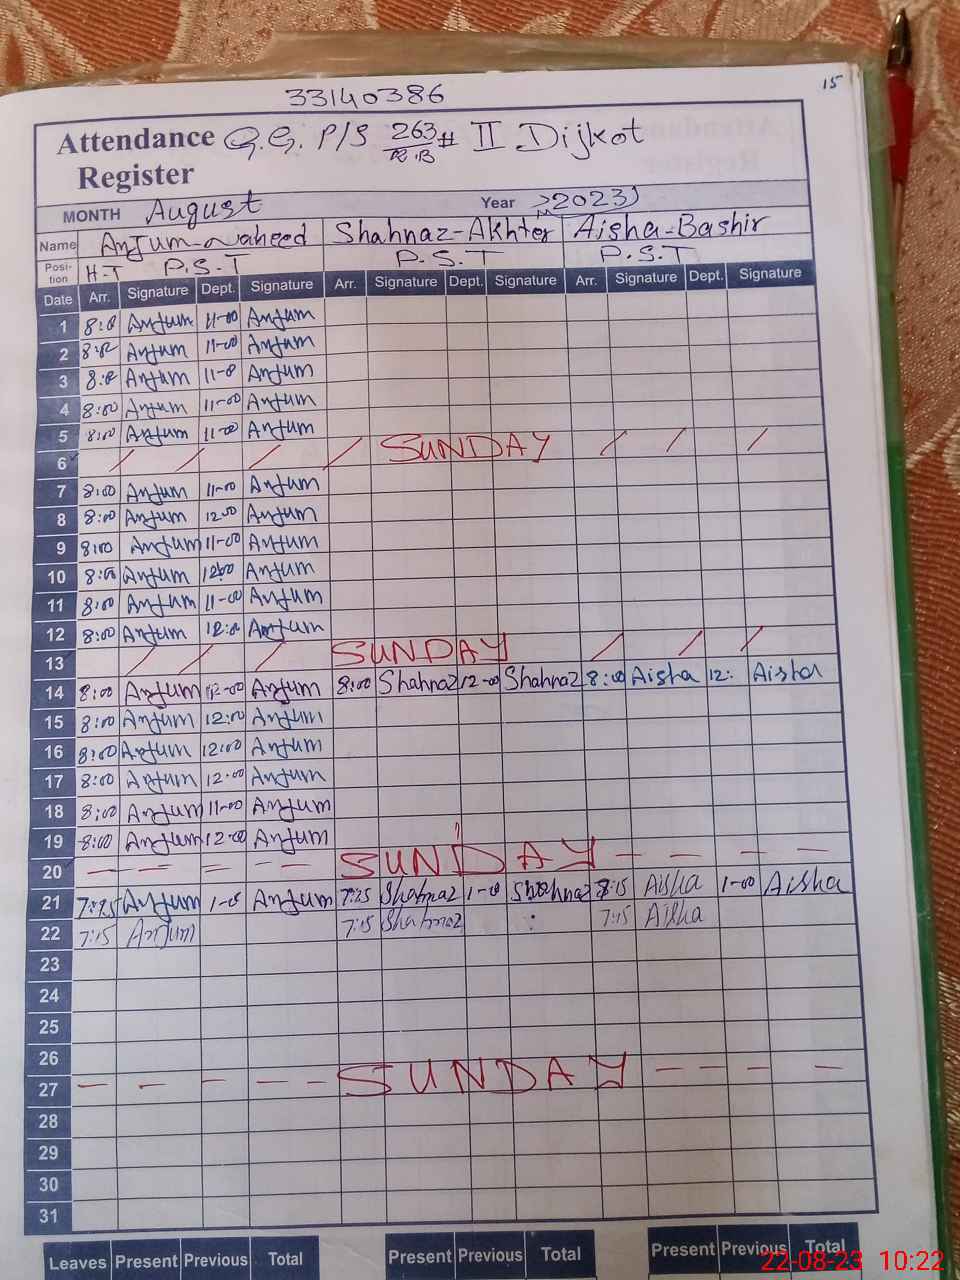 15
33140386
Attendance Register G.G. P/S 263/R.B # II Dijkot
MONTH August Year 2023
Name Anjum-waheed Shahnaz-Akhter Aisha-Bashir
Position H-T P.S.T P.S.T P.S.T
Date Arr. Signature Dept. Signature Arr. Signature Dept. Signature Arr. Signature Dept. Signature
1 Anjum 11-00 Anjum
2 Anjum 11-00 Anjum
3 Anjum 11-0 Anjum
4 8:00 Anjum 11-00 Anjum
5 8:00 Anjum 11-00 Anjum
6 SUNDAY
7 8:00 Anjum 11-00 Anjum
8 8:00 Anjum 12:00 Anjum
9 8:00 Anjum 11-00 Anjum
10 8:00 Anjum 12:00 Anjum
11 8:00 Anjum 11-00 Anjum
12 8:00 Anjum Anjum
13 SUNDAY
14 8:00 Anjum 12-00 Anjum 8:00 Shahnaz 12-00 Shahnaz 8:00 Aisha 12: Aisha
15 8:00 Anjum 12:00 Anjum
16 8:00 Anjum 12:00 Anjum
17 8:00 Anjum 12:00 Anjum
18 8:00 Anjum 11-00 Anjum
19 8:00 Anjum 12-00 Anjum
20 SUNDAY
21 Anjum Anjum Shahnaz Shahnaz Aisha 1-00 Aisha
22 7:15 Anjum 7:15 Shahnaz 7:15 Aisha
23
24
25
26
27 SUNDAY
28
29
30
31
Leaves Present Previous Total Present Previous Total Present Previous Total
22-08-23 10:22